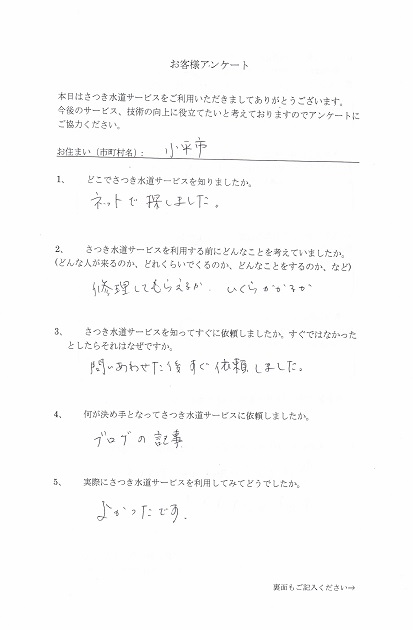 お客様アンケート
本日はさつき水道サービスをご利用いただきましてありがとうございます。
今後のサービス、技術の向上に役立てたいと考えておりますのでアンケートに
ご協力ください。
お住まい（市町村名）： 小平市
1、 どこでさつき水道サービスを知りましたか。
ネットで探しました。
2、 さつき水道サービスを利用する前にどんなことを考えていましたか。
（どんな人が来るのか、どれくらいでくるのか、どんなことをするのか、など）
修理してもらえるか、いくらかかるか
3、 さつき水道サービスを知ってすぐに依頼しましたか。すぐではなかった
としたらそれはなぜですか。
問いあわせた後すぐ依頼しました。
4、 何が決め手となってさつき水道サービスに依頼しましたか。
ブログの記事
5、 実際にさつき水道サービスを利用してみてどうでしたか。
よかったです。
裏面もご記入ください→